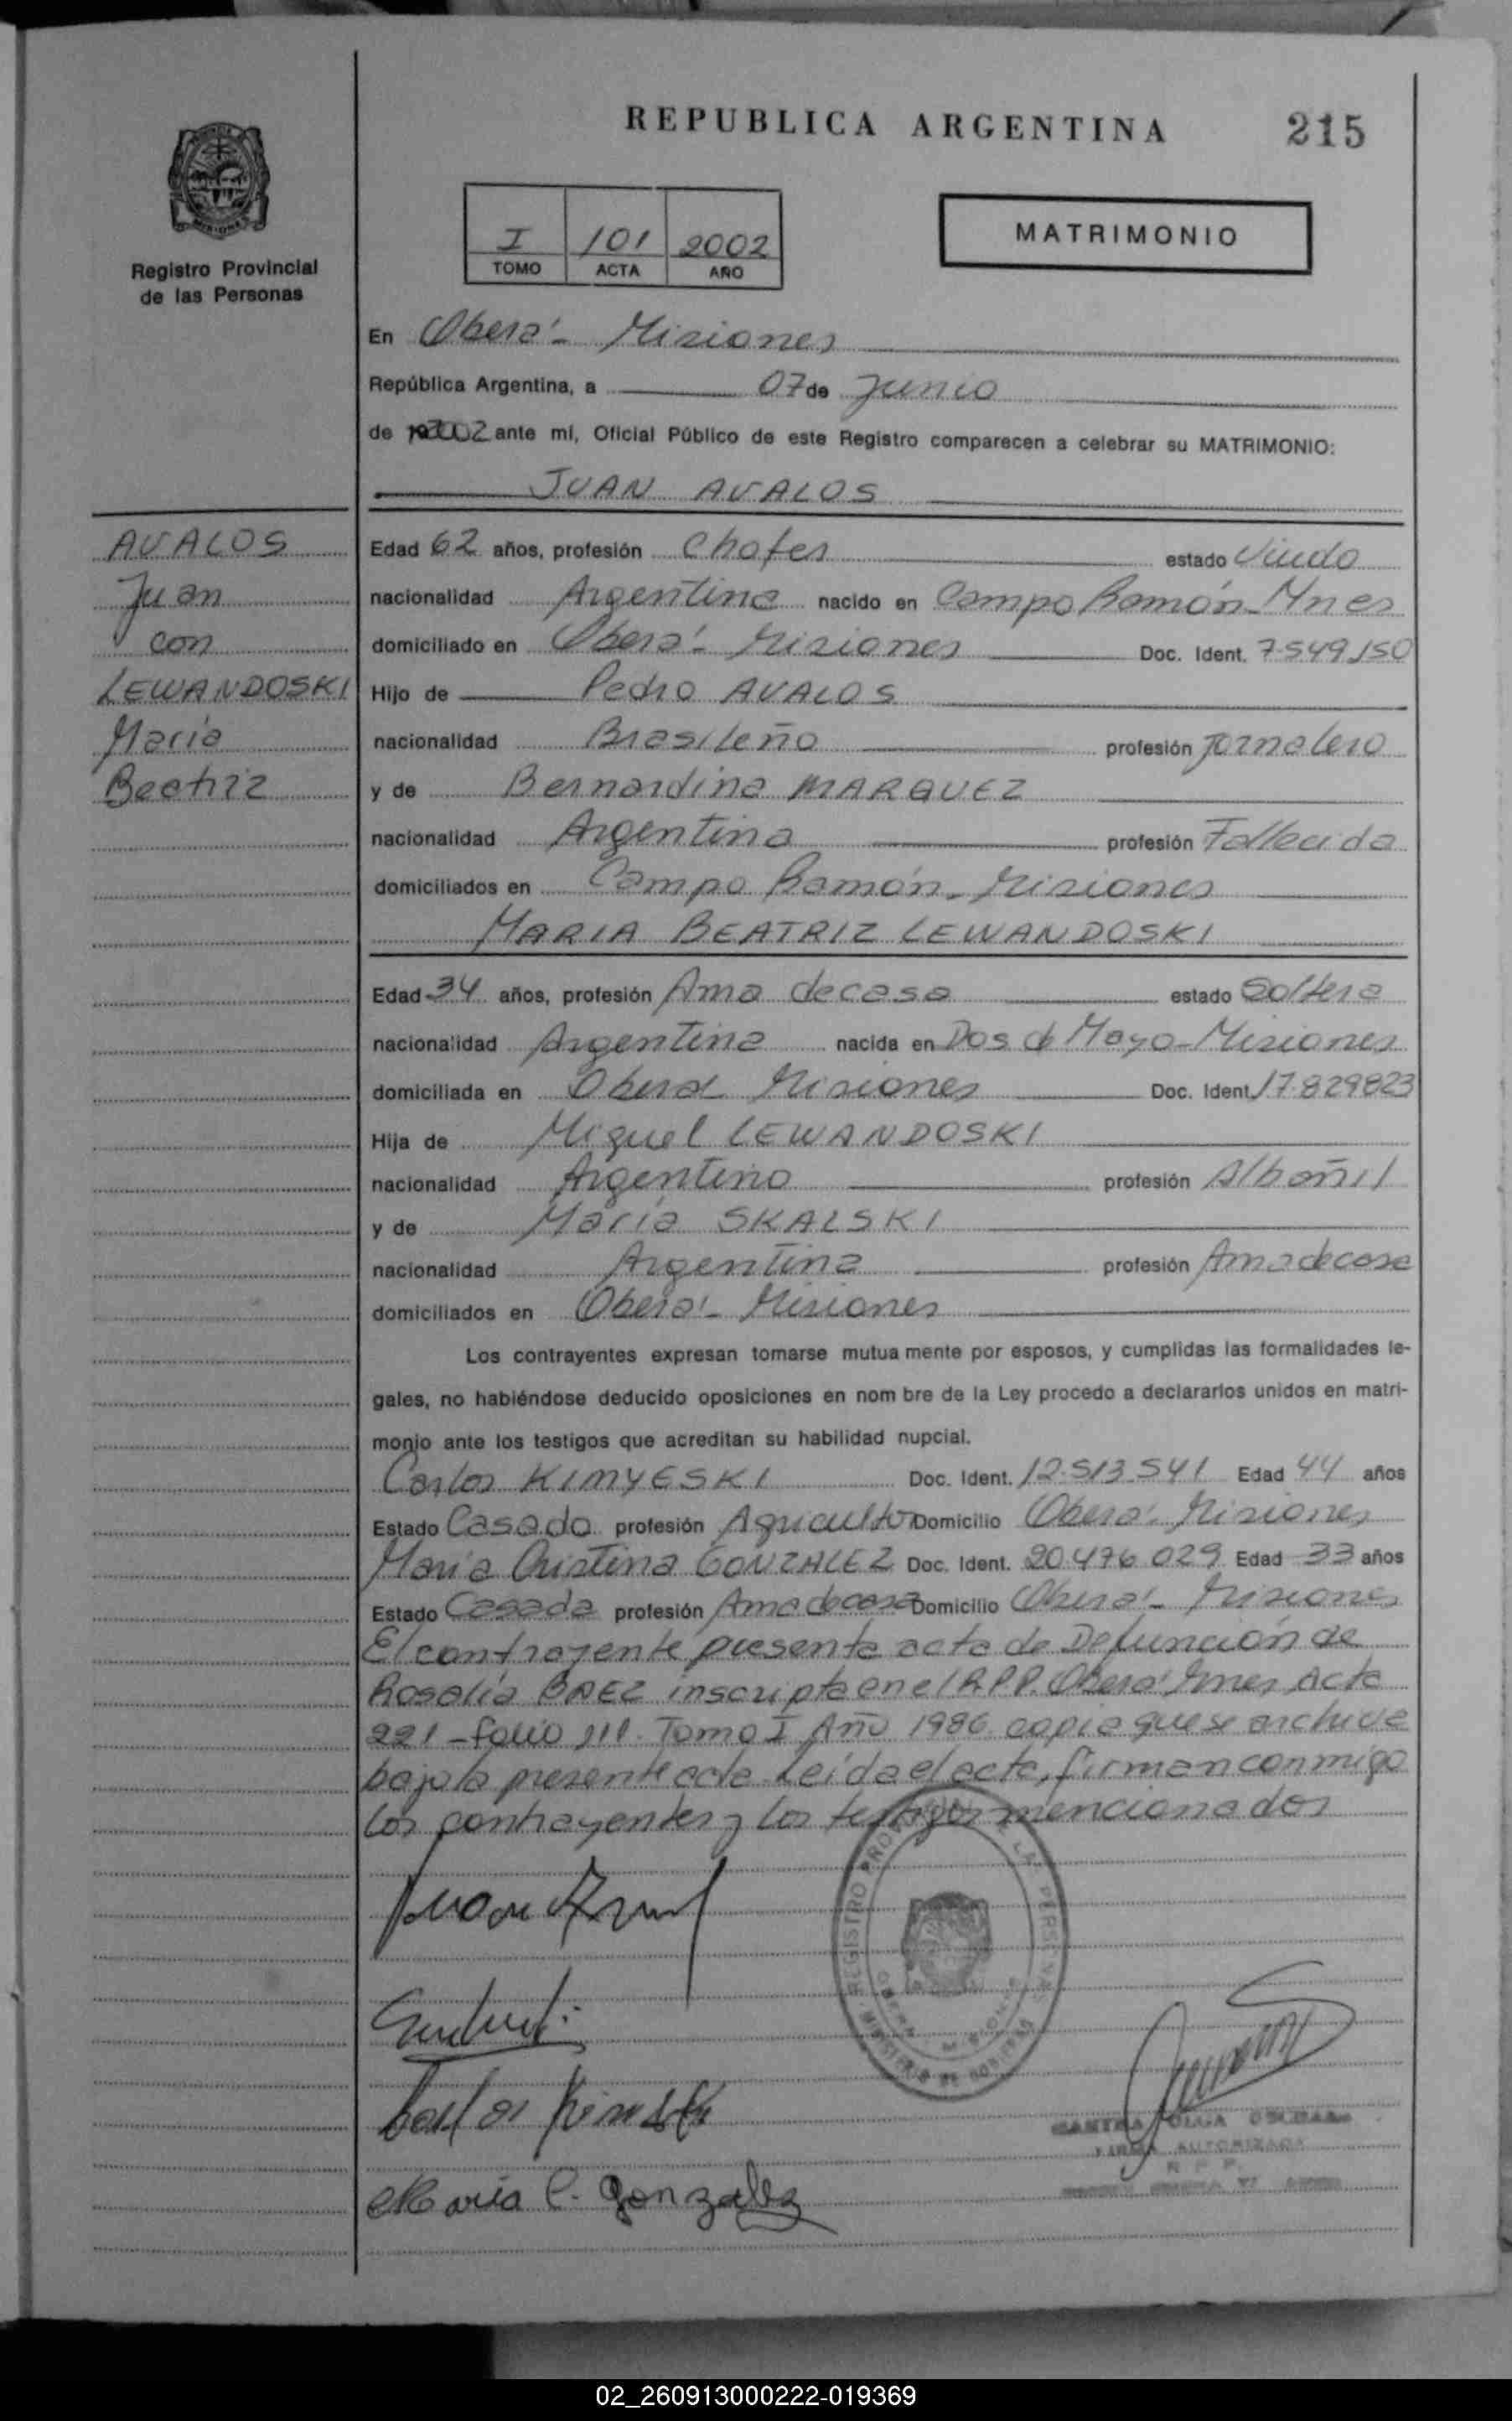 REPUBLICA ARGENTINA
215
I 101 2002
TOMO ACTA AÑO
MATRIMONIO
Registro Provincial
de las Personas
En Oberá - Misiones
República Argentina, a 07 de Junio
de 2002 ante mí, Oficial Público de este Registro comparecen a celebrar su MATRIMONIO:
JUAN AVALOS
AVALOS
Juan
con
LEWANDOSKI
María
Beatriz
Edad 62 años, profesión Chofer estado Viudo
nacionalidad Argentina nacido en Campo Ramón - Mnes
domiciliado en Oberá - Misiones Doc. Ident. 7.549.150
Hijo de Pedro AVALOS
nacionalidad Brasileño profesión Jornalero
y de Bernardina MARQUEZ
nacionalidad Argentina profesión Fallecida
domiciliados en Campo Ramón - Misiones
MARIA BEATRIZ LEWANDOSKI
Edad 34 años, profesión Ama de casa estado Soltera
nacionalidad Argentina nacida en Dos de Mayo - Misiones
domiciliada en Oberá Misiones Doc. Ident. 17.829823
Hija de Miguel LEWANDOSKI
nacionalidad Argentino profesión Albañil
y de María SKALSKI
nacionalidad Argentina profesión Ama de casa
domiciliados en Oberá - Misiones
Los contrayentes expresan tomarse mutua mente por esposos, y cumplidas las formalidades le-
gales, no habiéndose deducido oposiciones en nom bre de la Ley procedo a declararlos unidos en matri-
monio ante los testigos que acreditan su habilidad nupcial.
Carlos KIMYESKI Doc. Ident. 12.513.541 Edad 44 años
Estado Casado profesión Agricultor Domicilio Oberá - Misiones
María Cristina GONZALEZ Doc. Ident. 20.476.029 Edad 33 años
Estado Casada profesión Ama de casa Domicilio Oberá - Misiones
El contrayente presenta acta de Defunción de
Rosalía BAEZ inscripta en el R.P.P. Oberá Mnes Acta
221 - folio 111 - Tomo I Año 1986 copia que se archiva
bajo la presente acta. Leída el acta, firman conmigo
los contrayentes y los testigos mencionados
Juan
Carlos
Maria C. Gonzalez
REGISTRO DE LA PERSONAS
OLGA
FIRMA AUTORIZADA
R. P. P.
02_260913000222-019369